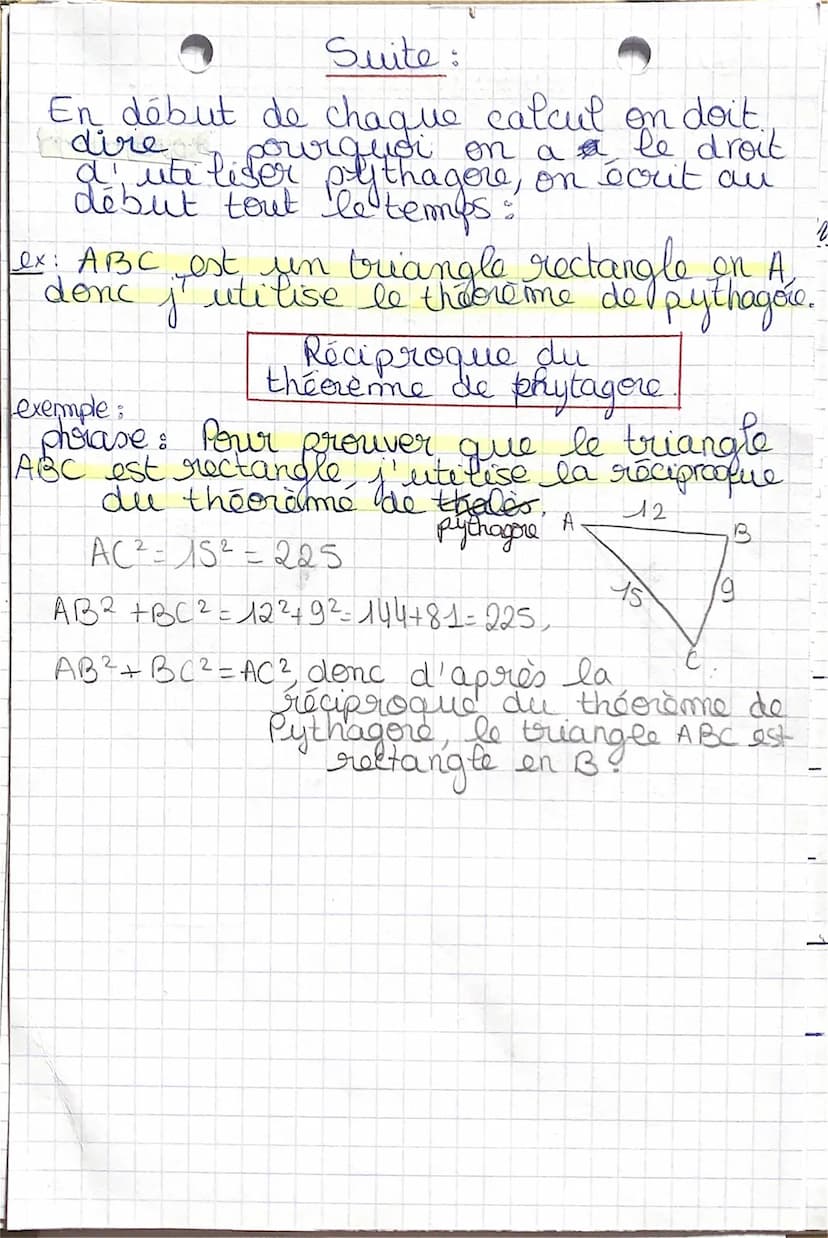 Suite :
En début de chaque calcul on doit
dire pourquoi on a le droit
d'utiliser pythagore, on écrit au
début tout le temps :
ex : ABC est un triangle rectangle en A,
donc j'utilise le théorème de pythagore.
Réciproque du
théorème de phytagore.
exemple :
phrase : Pour prouver que le triangle
ABC est rectangle, j'utilise la réciproque
du théorème de thalès.
pythagore
A 12 B
15 9
C
AC² = 15² = 225
AB² + BC² = 12² + 9² = 144 + 81 = 225,
AB² + BC² = AC², donc d'après la
réciproque du théorème de
Pythagore, le triangle ABC est
rectangle en B.